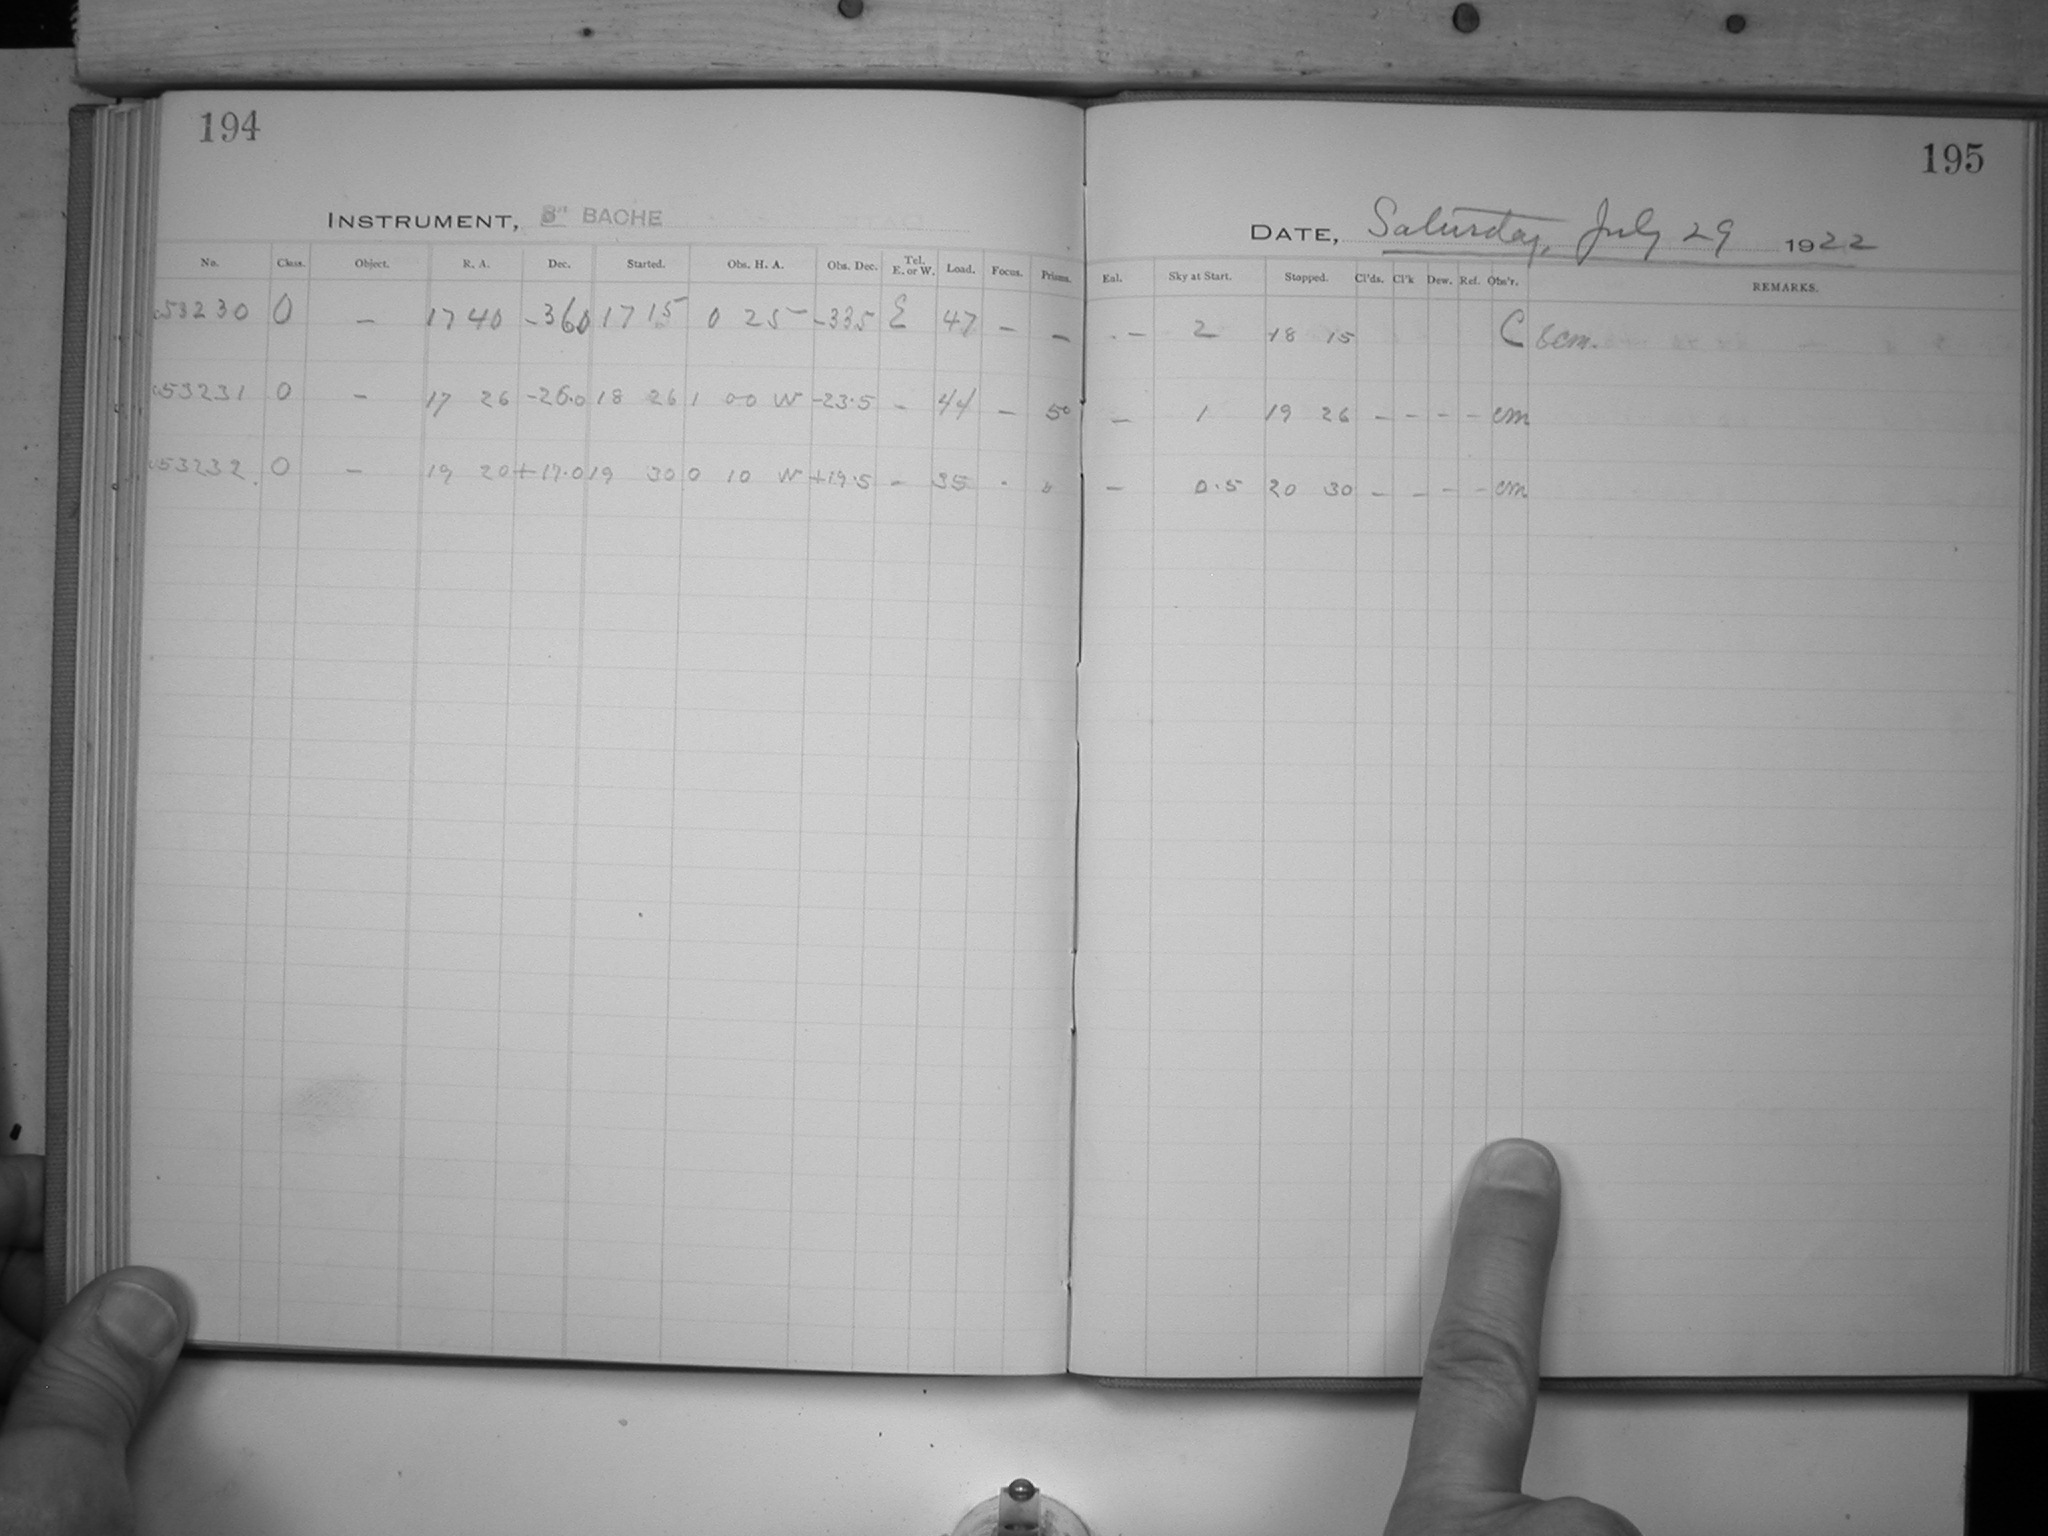 194
INSTRUMENT, 8" BACHE
No. Class. Object. R. A. Dec. Started. Obs. H. A. Obs. Dec. Tel. E. or W. Load. Focus. Prisms.
53230 O – 17 40 -360 17 15 0 25 -335 E 47 – –
53231 O – 17 26 -26.0 18 26 1 00 W -23.5 – 44 – 50
53232 O – 19 20 +17.0 19 30 0 10 W +19.5 – 35 - "
195
DATE, Saturday, July 29 1922
Sky at Start. Stopped. Cl'ds. Cl'k Dew. Ref. Obs'r. REMARKS.
– 2 18 15 C
– 1 19 26 – – – – cm
– 0.5 20 30 – – – – cm